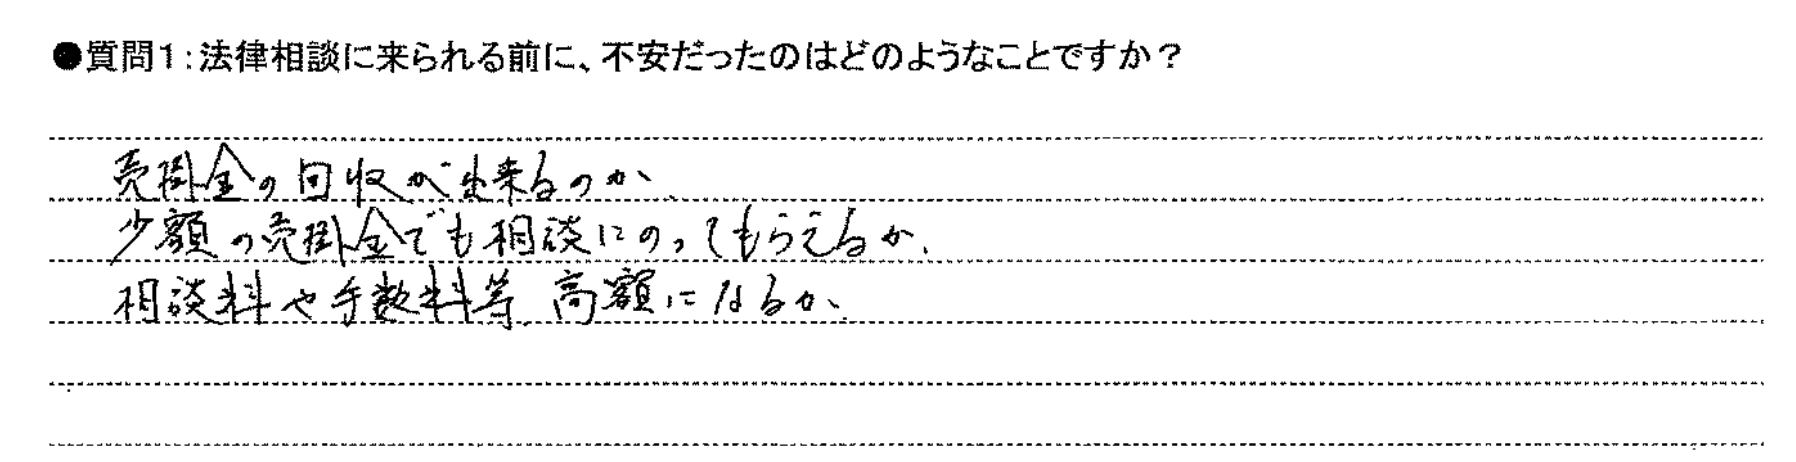 ●質問1:法律相談に来られる前に、不安だったのはどのようなことですか?
売掛金の回収が出来るのか、
少額の売掛金でも相談にのってもらえるか、
相談料や手数料等、高額になるか、